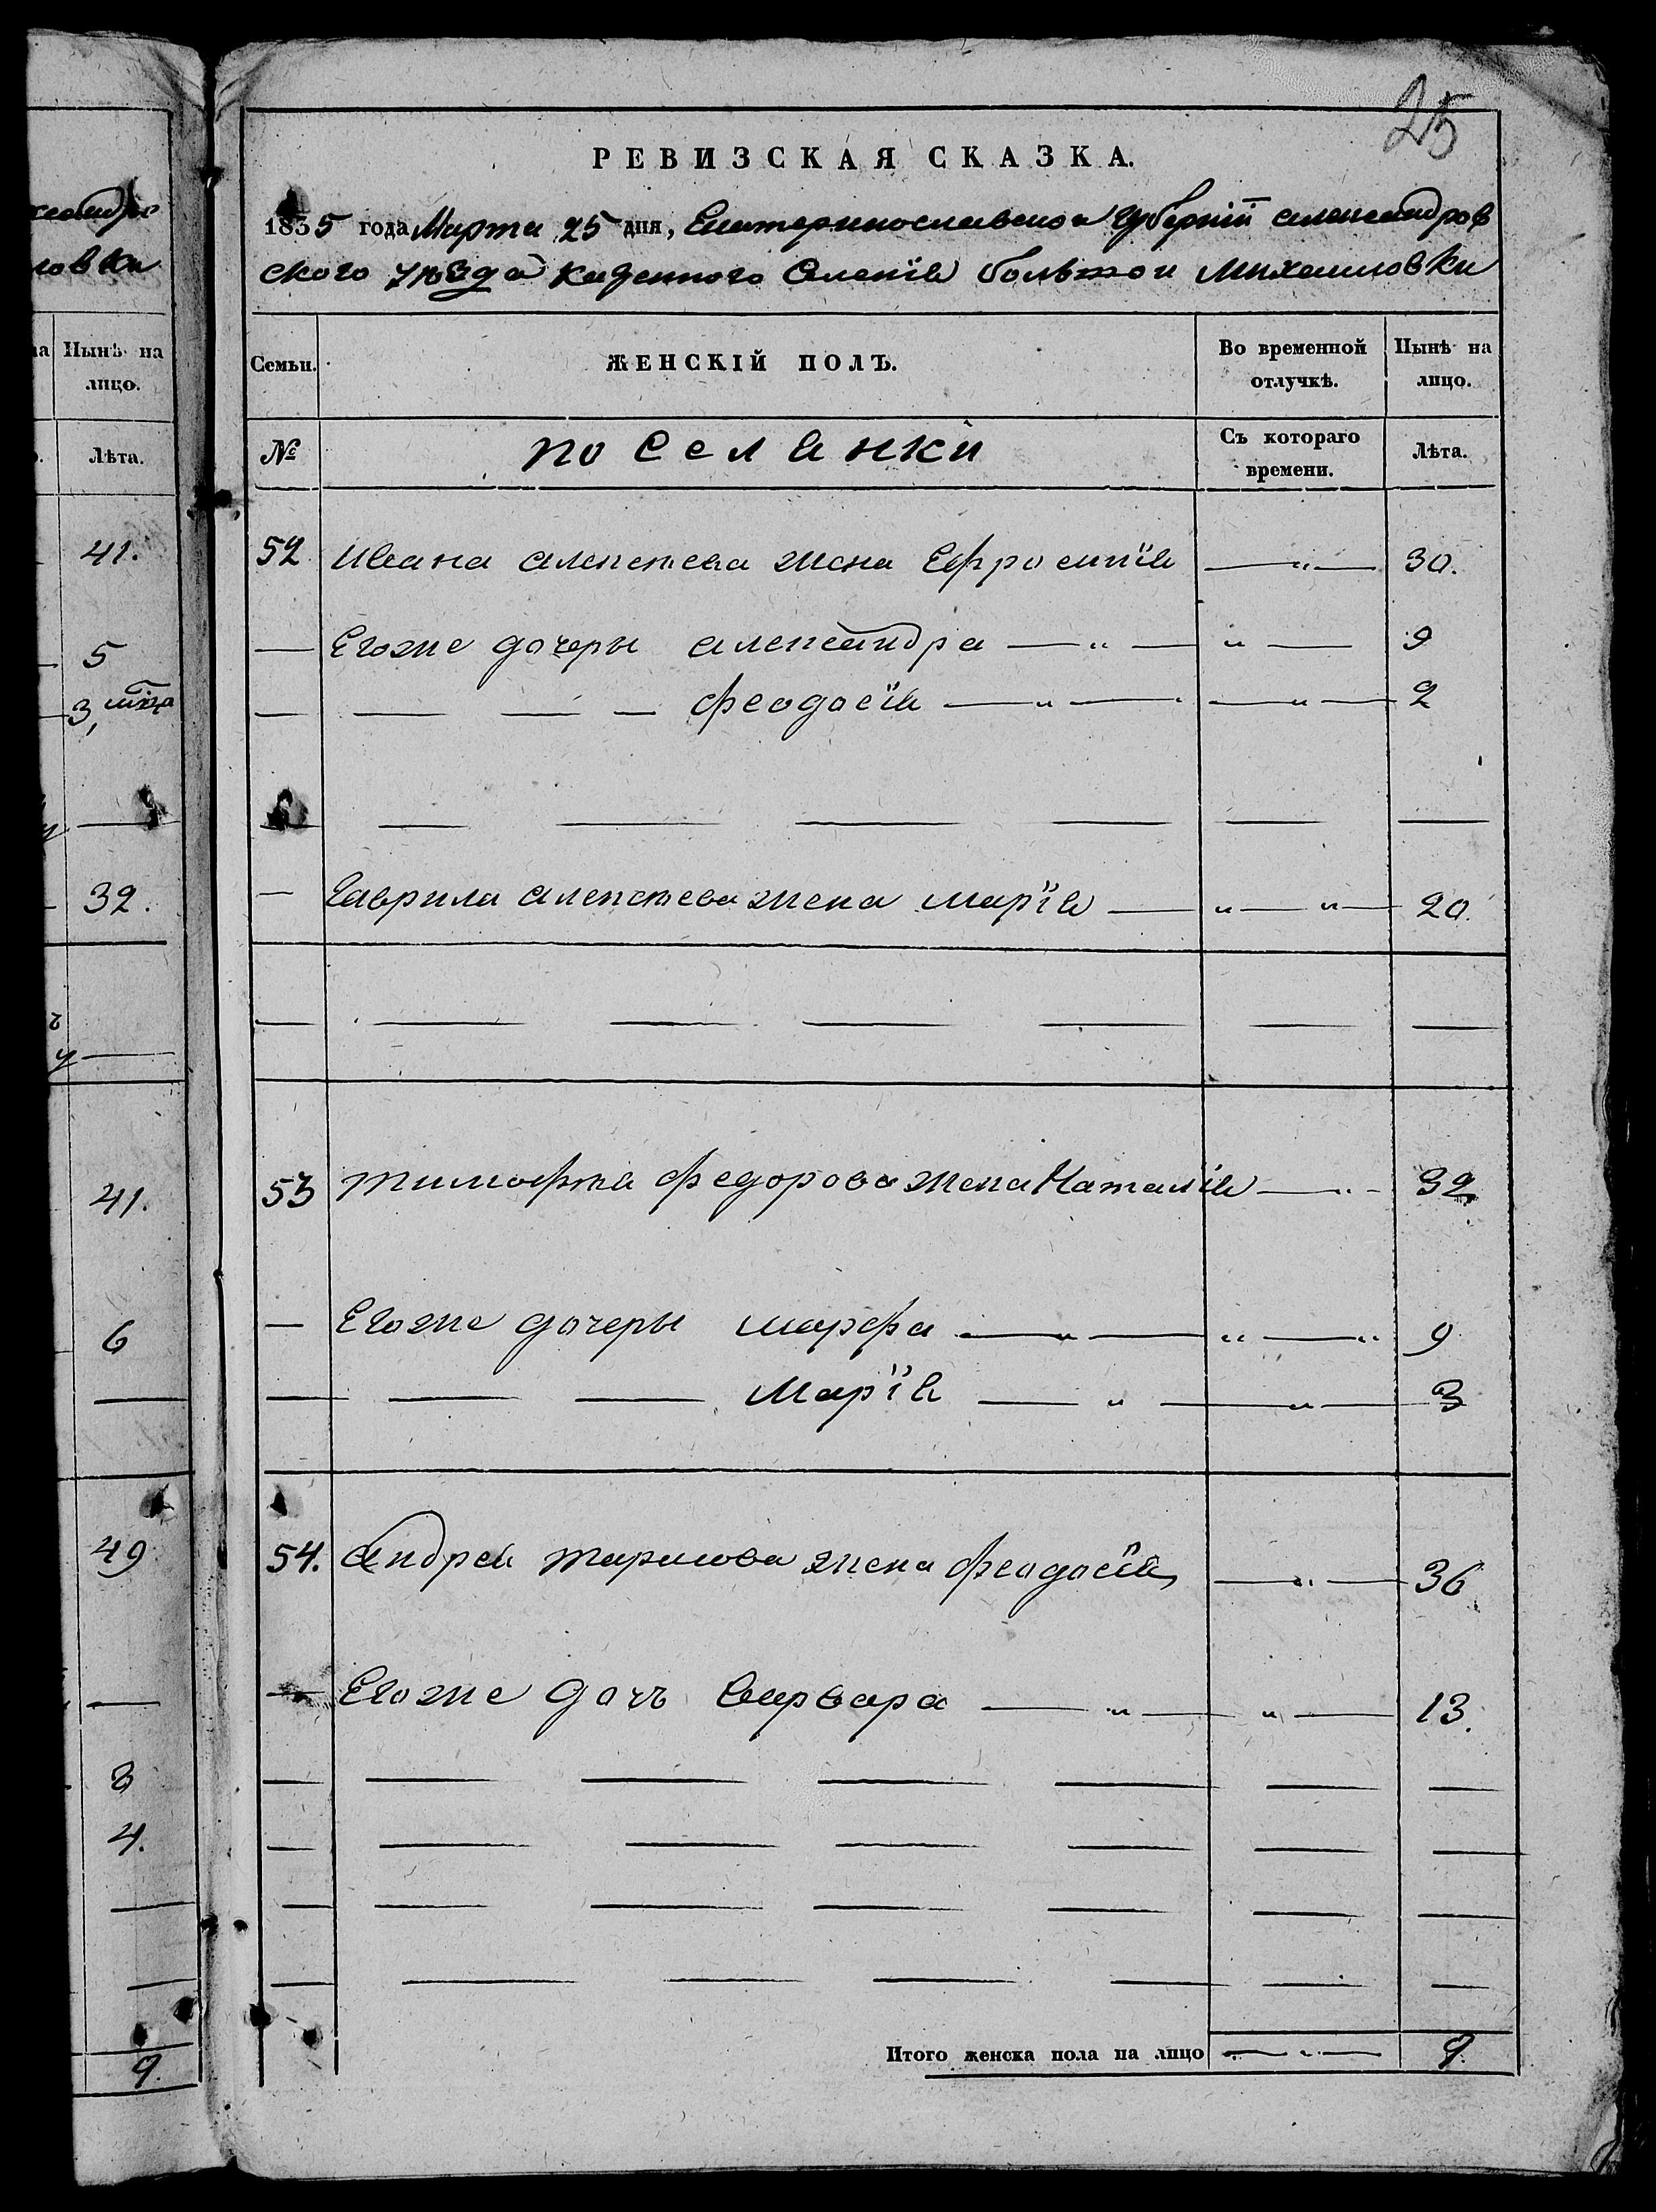 25
РЕВИЗСКАЯ СКАЗКА.
1835 года Марта 25 дня, Екатеринославской Губернїи александров
ского уѣзда казенного Селенїя большой михаиловки
Семьи. ЖЕНСКІЙ ПОЛЪ. Во временной отлучкѣ. Нынѣ на лицо.
№ поселянки Съ котораго времени. Лѣта.
52 ивана алексѣева жена Ефросинїя — " — 30.
— Егоже дочеры александра — " — " — 9
— — — — феодосїя — " — — " — 2
— — — — — — —
— Гаврила алексѣева жена марїя — " — " — 20.
— — — — — — —
53 тимофѣя федорова жена Наталїя — " — 32
— Егоже дочеры марфа — " — " — " 9
— — — Марїя — " — " — 3
54. андрея жена феодосїя — " — 36
— Егоже дочъ варвара — " — " — 13.
— — — — — — —
— — — — — — —
— — — — — — —
— — — — — — —
Итого женска пола на лицо — " — 9.
ловки
Нынѣ на
лицо.
Лѣта.
41.
5
3,
32.
41.
6
49
3
4.
9.